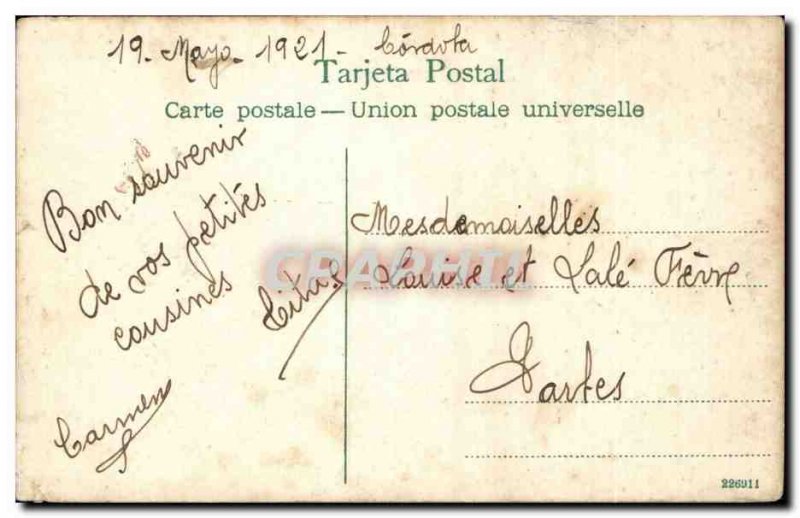 19. Mayo. 1921 - Córdoba
Tarjeta Postal
Carte postale — Union postale universelle
Bon souvenir
de vos petites
cousines
Carmen
Mesdemoiselles
Louise et Lalé Fèvre
226911